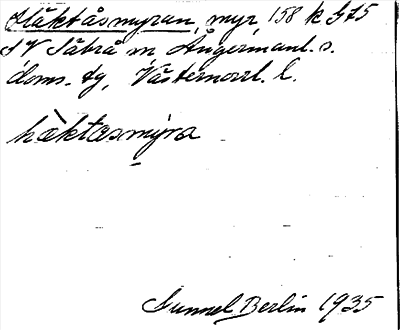 Häktåsmyran, myr, 158 k G75
SV Säbrå sn Ångermanl. s.
doms. tg, Västernorrl. l.
hàktasmýra
Gunnel Berlin 1935